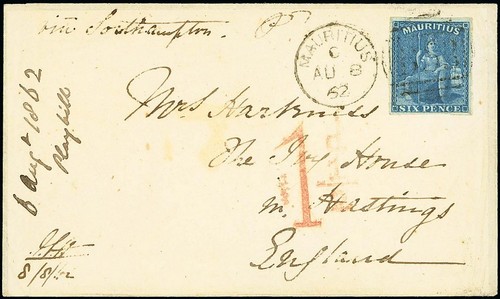 via Southampton.
MAURITIUS
C
AU 8
62
MAURITIUS
SIX PENCE
Mrs Harkness
The Ivy House
nr. Hastings
England
1
6 Augt 1862
8/8/62